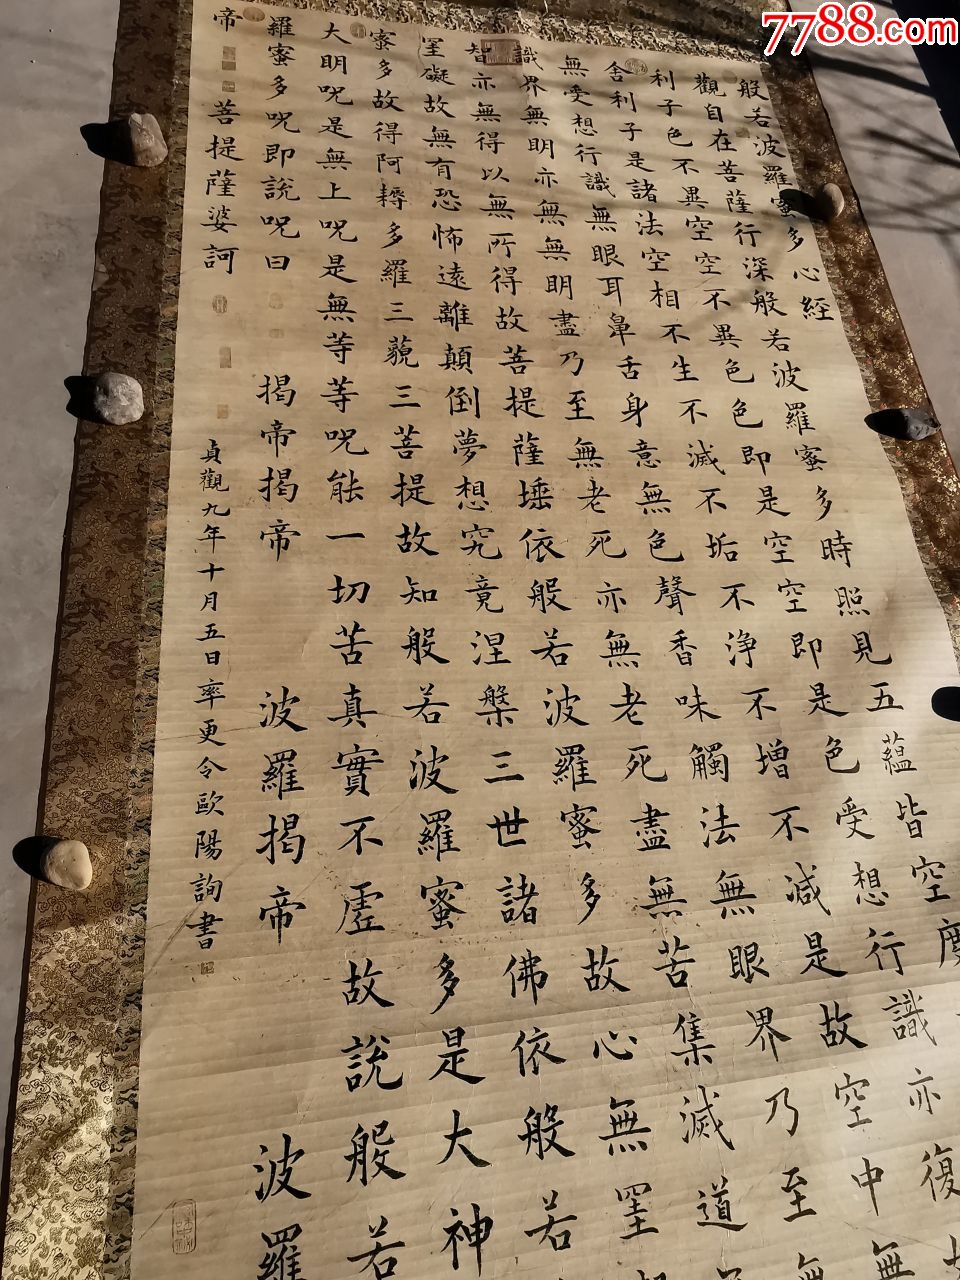 7788.com
般若波羅蜜多心經
觀自在菩薩行深般若波羅蜜多時照見五蘊皆空度
利子色不異空空不異色色即是空空即是色受想行識亦復
舍利子是諸法空相不生不滅不垢不浄不增不減是故空中無
無受想行識無眼耳鼻舌身意無色聲香味觸法無眼界乃至無
識界無明亦無無明盡乃至無老死亦無老死盡無苦集滅道
智亦無得以無所得故菩提薩埵依般若波羅蜜多故心無罣
罣礙故無有恐怖遠離顛倒夢想究竟涅槃三世諸佛依般若
蜜多故得阿耨多羅三藐三菩提故知般若波羅蜜多是大神
大明呪是無上呪是無等等呪能一切苦真實不虛故說般若
羅蜜多呪即說呪曰 揭帝揭帝 波羅揭帝 波羅
帝 菩提薩婆訶
貞觀九年十月五日率更令歐陽詢書